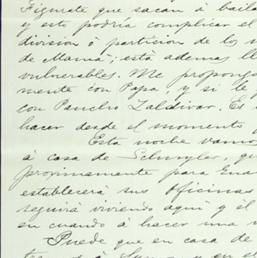 Figurate que sacan á baila
y esto podría complicar el
division ó particion de los
de Mamá; está ademas ll
vulnerables. Me propong
mente con Papa, y si le
con Pancho Zaldivar. Es
hacer desde el momento
Esta noche vamos
á casa de Schuyler, qu
proximamente para
establecerá sus oficinas
seguirá viviendo aquí y él
en cuando á hacer una
Puede que en casa de